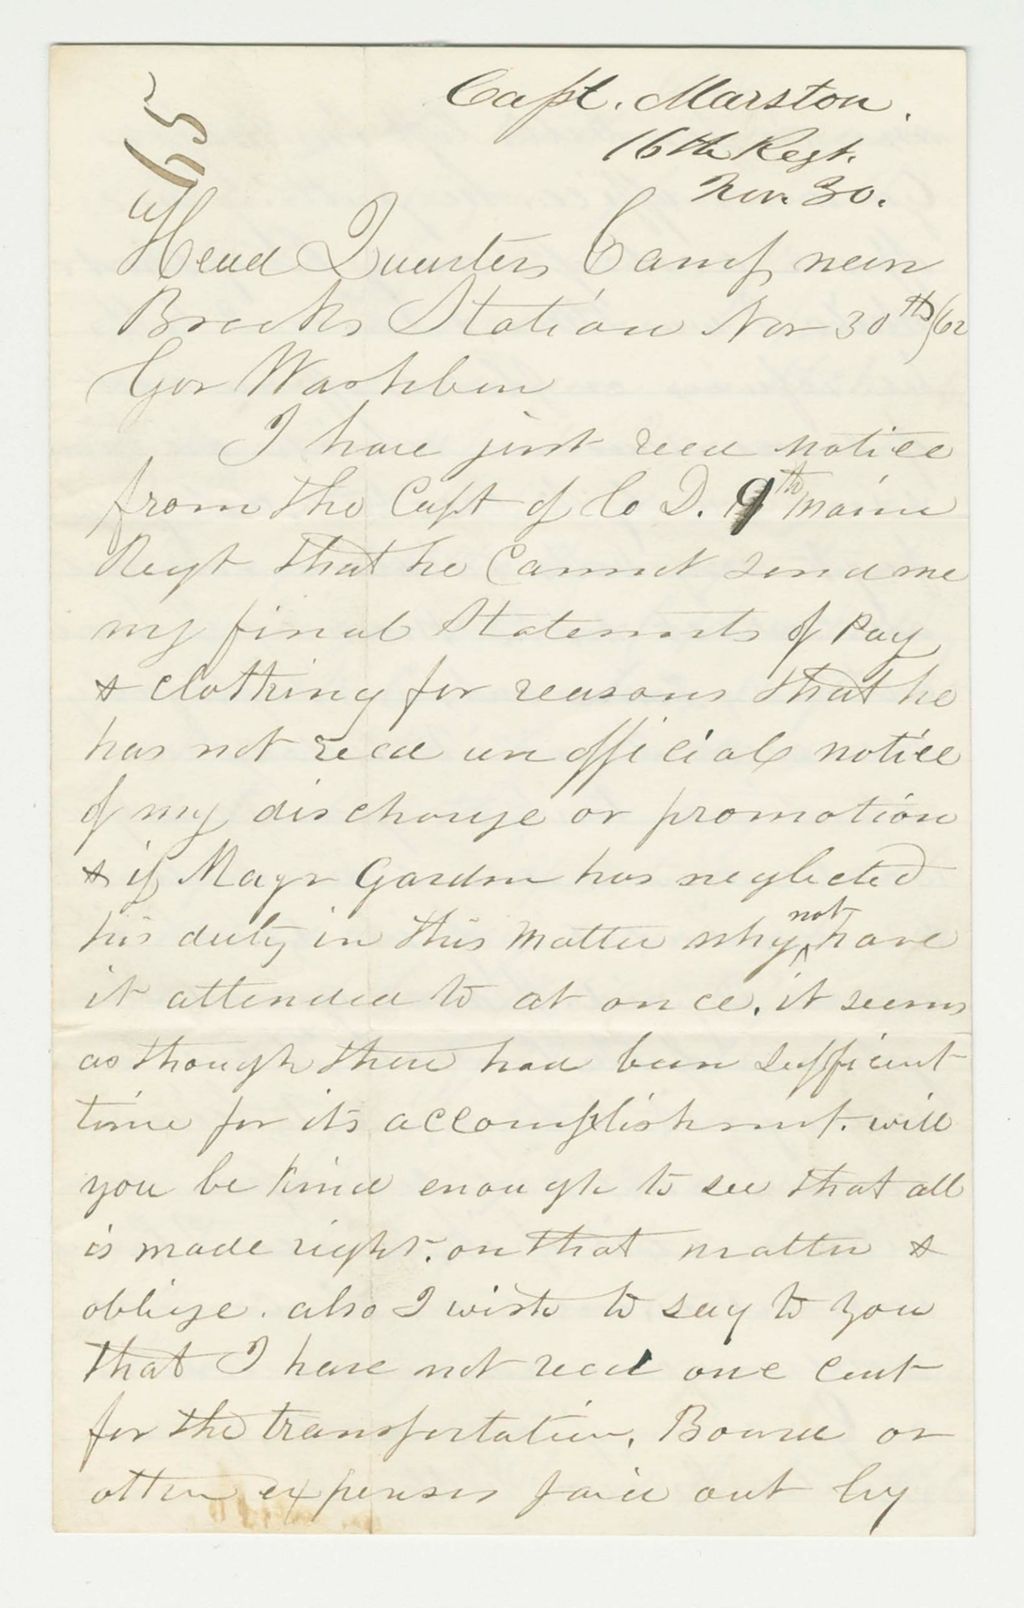 65
Capt. Marston.
16th Regt.
Nov. 30.
Head Quarters Camp near
Brooks Station Nov 30th/62
Gov Washburn
I have just recd notice
from the Capt of Co D. 9th Maine
Regt that he cannot send me
my final Statements of Pay
& clothing for reasons that he
has not recd an official notice
of my discharge or promotion
& if Mayr Gardner has neglected
his duty in this matter why not have
it attended to at once. it seems
as though there had been sufficient
time for its accomplishment. will
you be kind enough to see that all
is made right. on that matter &
oblige. also I wish to say to you
that I have not recd one cent
for the transportation, Board or
other expenses paid out by